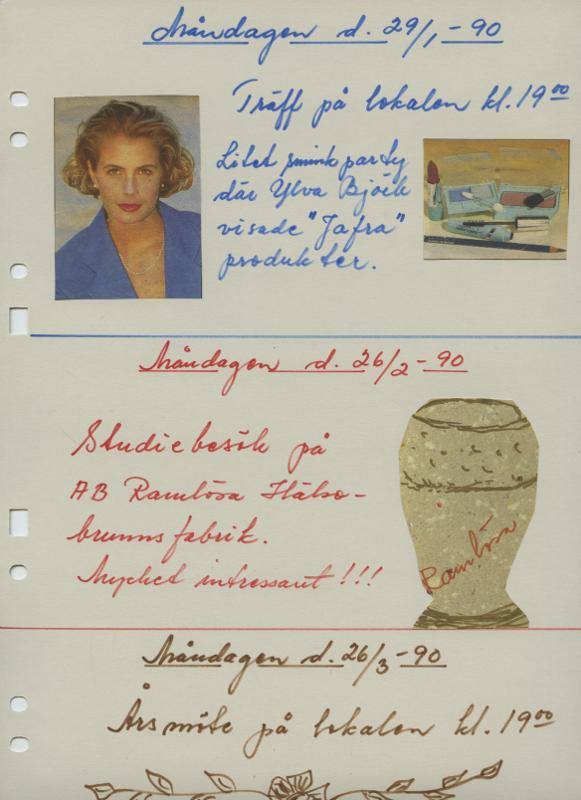 Måndagen d. 29/1 - 90
Träff på lokalen kl. 19⁰⁰
Litet sminkparty
där Ylva Björk
visade "Jafra"
produkter.
Måndagen d. 26/2 - 90
Studiebesök på
AB Ramlösa Hälso-
brunns fabrik.
Mycket intressant!!!
Ramlösa
Måndagen d. 26/3 - 90
Årsmöte på lokalen kl. 19⁰⁰